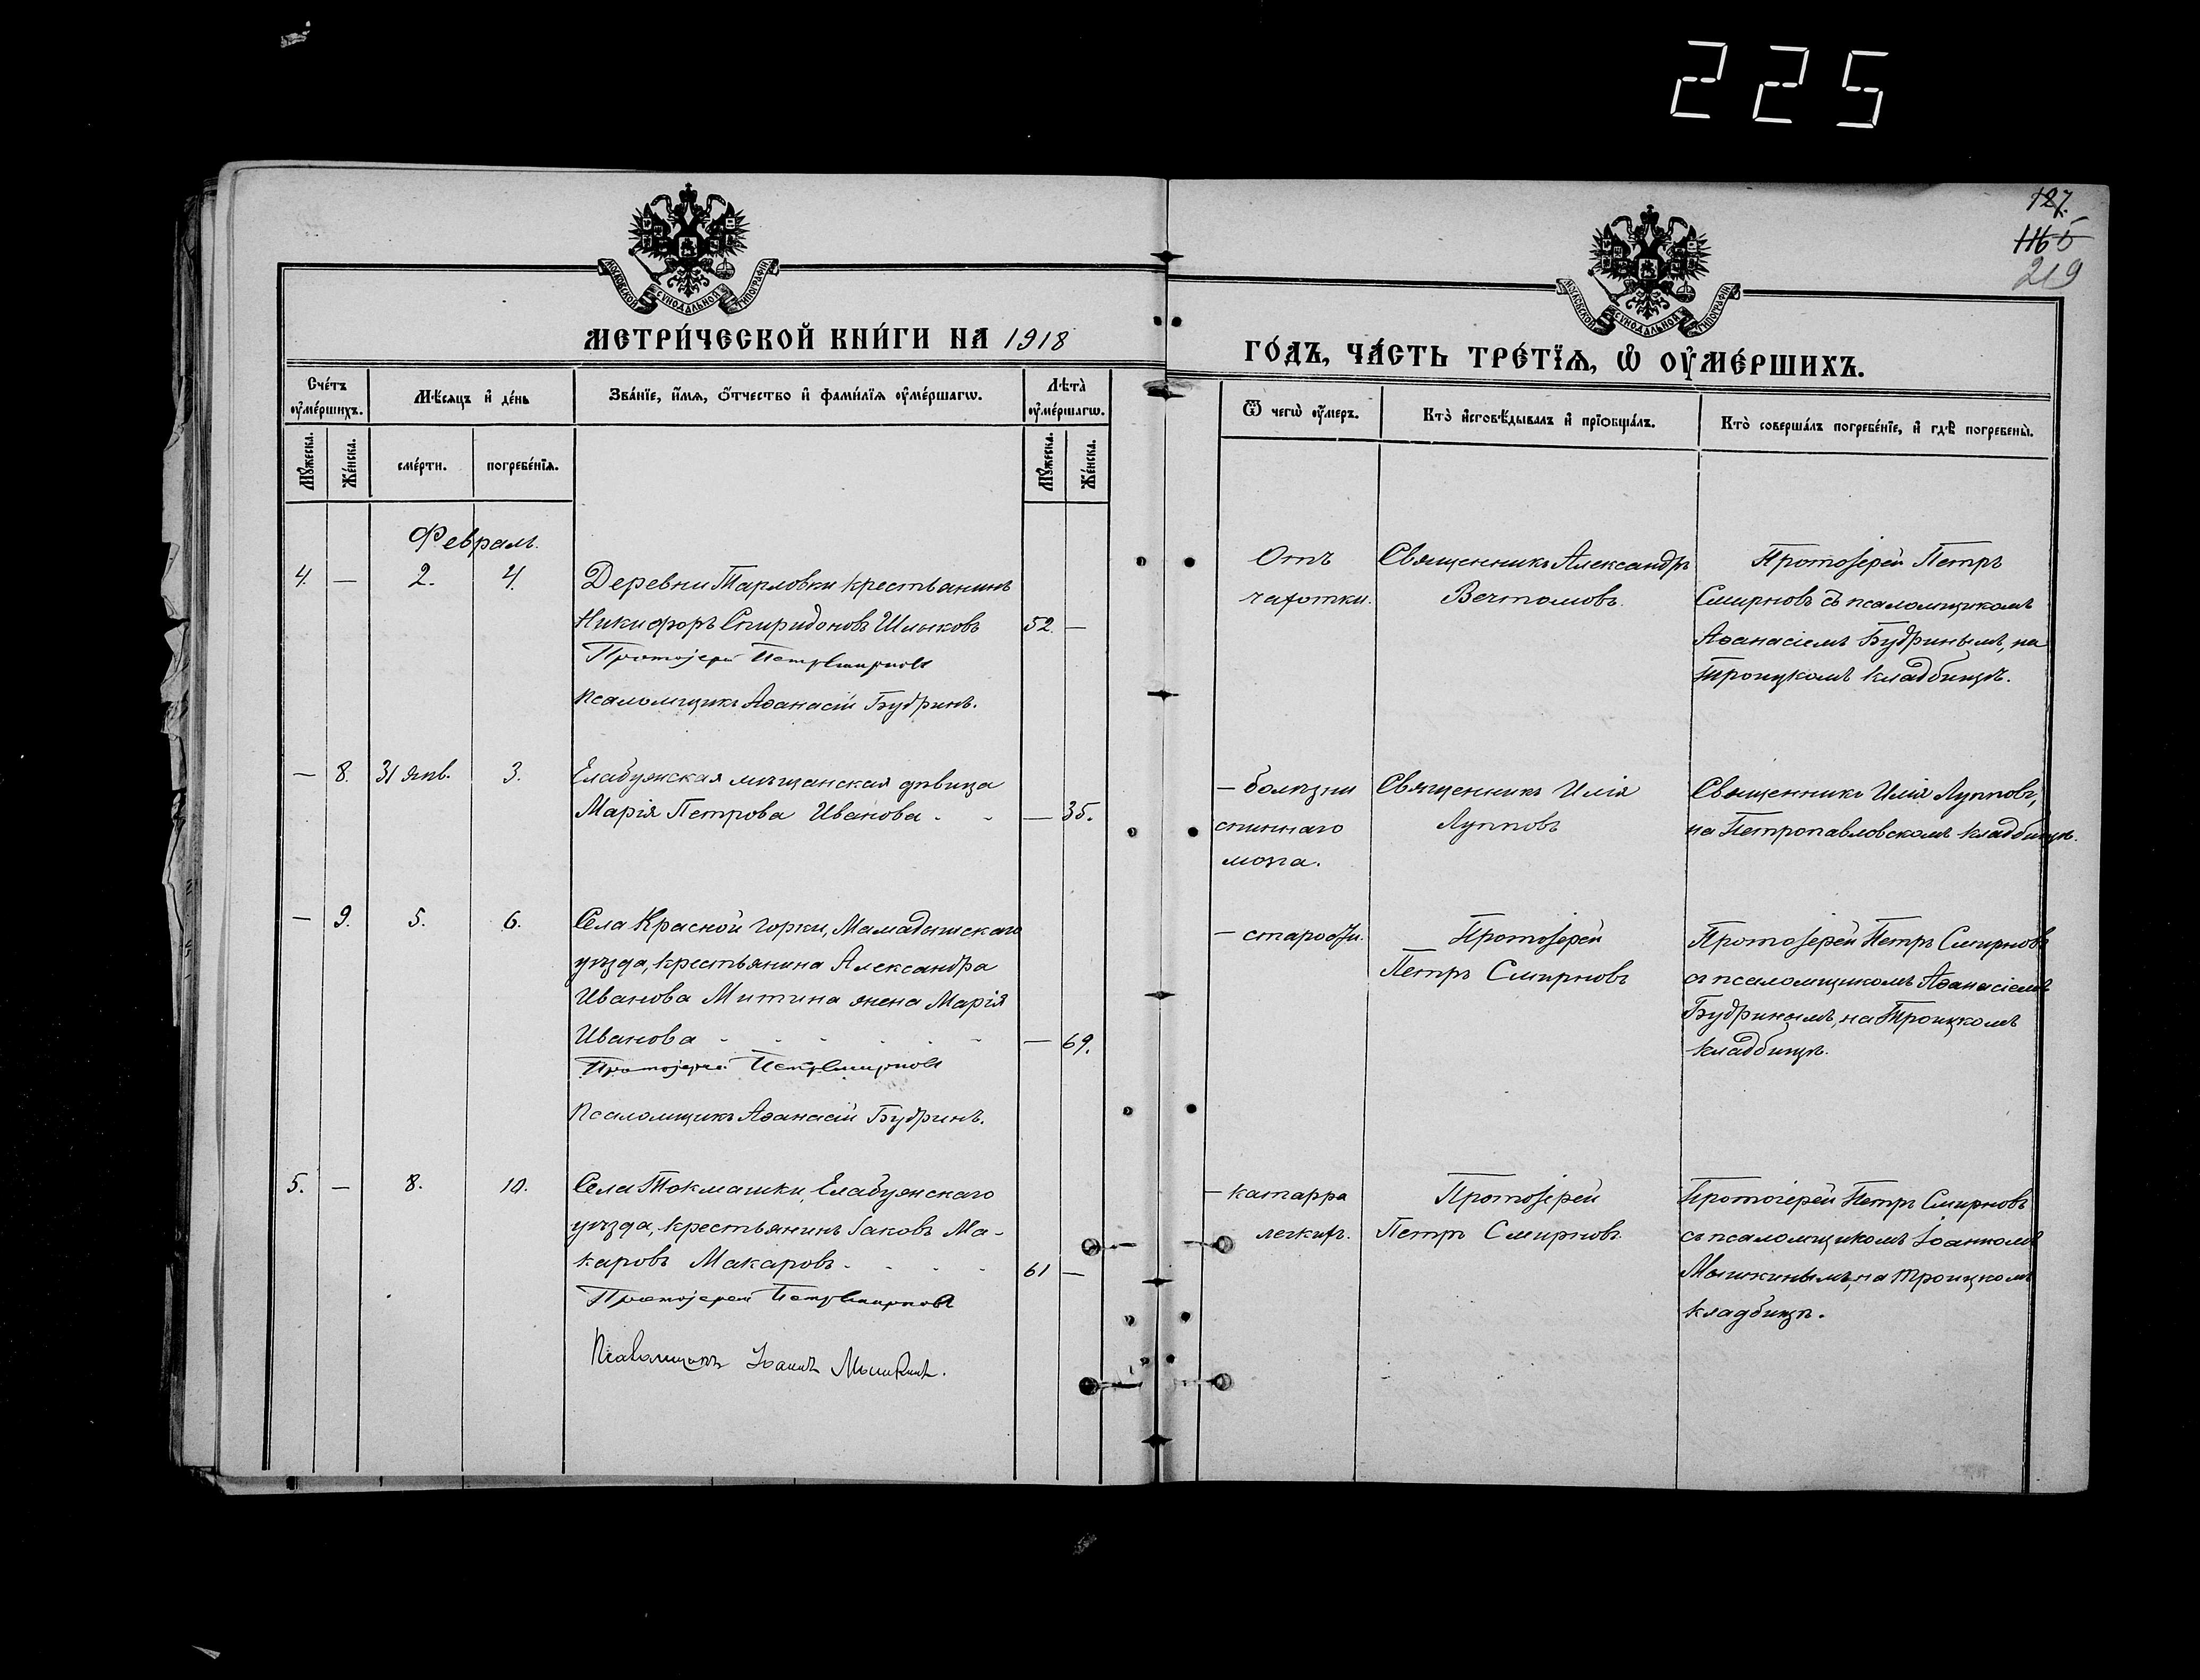 225
127.
116 б
219
МОСКОВСКОЙ СУНОДАЛЬНОЙ ТИПОГРАФІИ
МОСКОВСКОЙ СУНОДАЛЬНОЙ ТИПОГРАФІИ
МЕТРИ́ЧЕСКОЙ КНИ́ГИ НА 1918
ГО́ДЪ, ЧА́СТЬ ТРЕ́ТЇѦ, Ѡ҆ ОУ҆МЕ́РШИХЪ.
Сче́тъ оу҆ме́ршихъ.
Мѣ́сяцъ и҆ де́нь
Зва́нїе, и҆́мѧ, ѻ҆́тчество и҆ фами́лїѧ оу҆ме́ршагѡ.
Лѣта̀ оу҆ме́ршагѡ.
Ѿ чегѡ̀ оу҆́меръ.
Кто̀ и҆сповѣ́дывалъ и҆ прїобща́лъ.
Кто̀ соверша́лъ погребе́нїе, и҆ гдѣ̀ погребены̀.
Мꙋ́жеска.
Же́нска.
сме́рти.
погребе́нїѧ.
Мꙋ́жеска.
Же́нска.
Февраль.
4. — 2. 4. Деревни Тарловки крестьянинъ
Никифоръ Спиридоновъ Шлыковъ 52. —
Протоіерей Петръ Смирновъ
Псаломщикъ Аѳанасій Будринъ.
Отъ
чахотки.
Священникъ Александръ
Вечтомовъ.
Протоіерей Петръ
Смирновъ съ псаломщикомъ
Аѳанасіемъ Будринымъ, на
Троицкомъ кладбищѣ.
— 8. 31 янв. 3. Елабужская мѣщанская дѣвица
Марія Петрова Иванова - - — 35.
— болѣзни
спиннаго
мозга.
Священникъ Илія
Лупповъ
Священникъ Илія Лупповъ,
на Петропавловскомъ кладбищѣ.
— 9. 5. 6. Села Красной Горки, Мамадышскаго
уѣзда, крестьянина Александра
Иванова Митина жена Марія
Иванова - - - - - - — 69.
Протоіерей Петръ Смирновъ
Псаломщикъ Аѳанасій Будринъ.
— старости.
Протоіерей
Петръ Смирновъ
Протоіерей Петръ Смирновъ
съ псаломщикомъ Аѳанасіемъ
Будринымъ, на Троицкомъ
кладбищѣ.
5. — 8. 10. Села Токмашки, Елабужскаго
уѣзда, крестьянинъ Іаковъ Ма-
каровъ Макаровъ - - - - 61 —
Протоіерей Петръ Смирновъ
Псаломщикъ Іоаннъ Мышкинъ.
— катарра
легкихъ.
Протоіерей
Петръ Смирновъ.
Протоіерей Петръ Смирновъ
съ псаломщикомъ Іоанномъ
Мышкинымъ, на Троицкомъ
кладбищѣ.